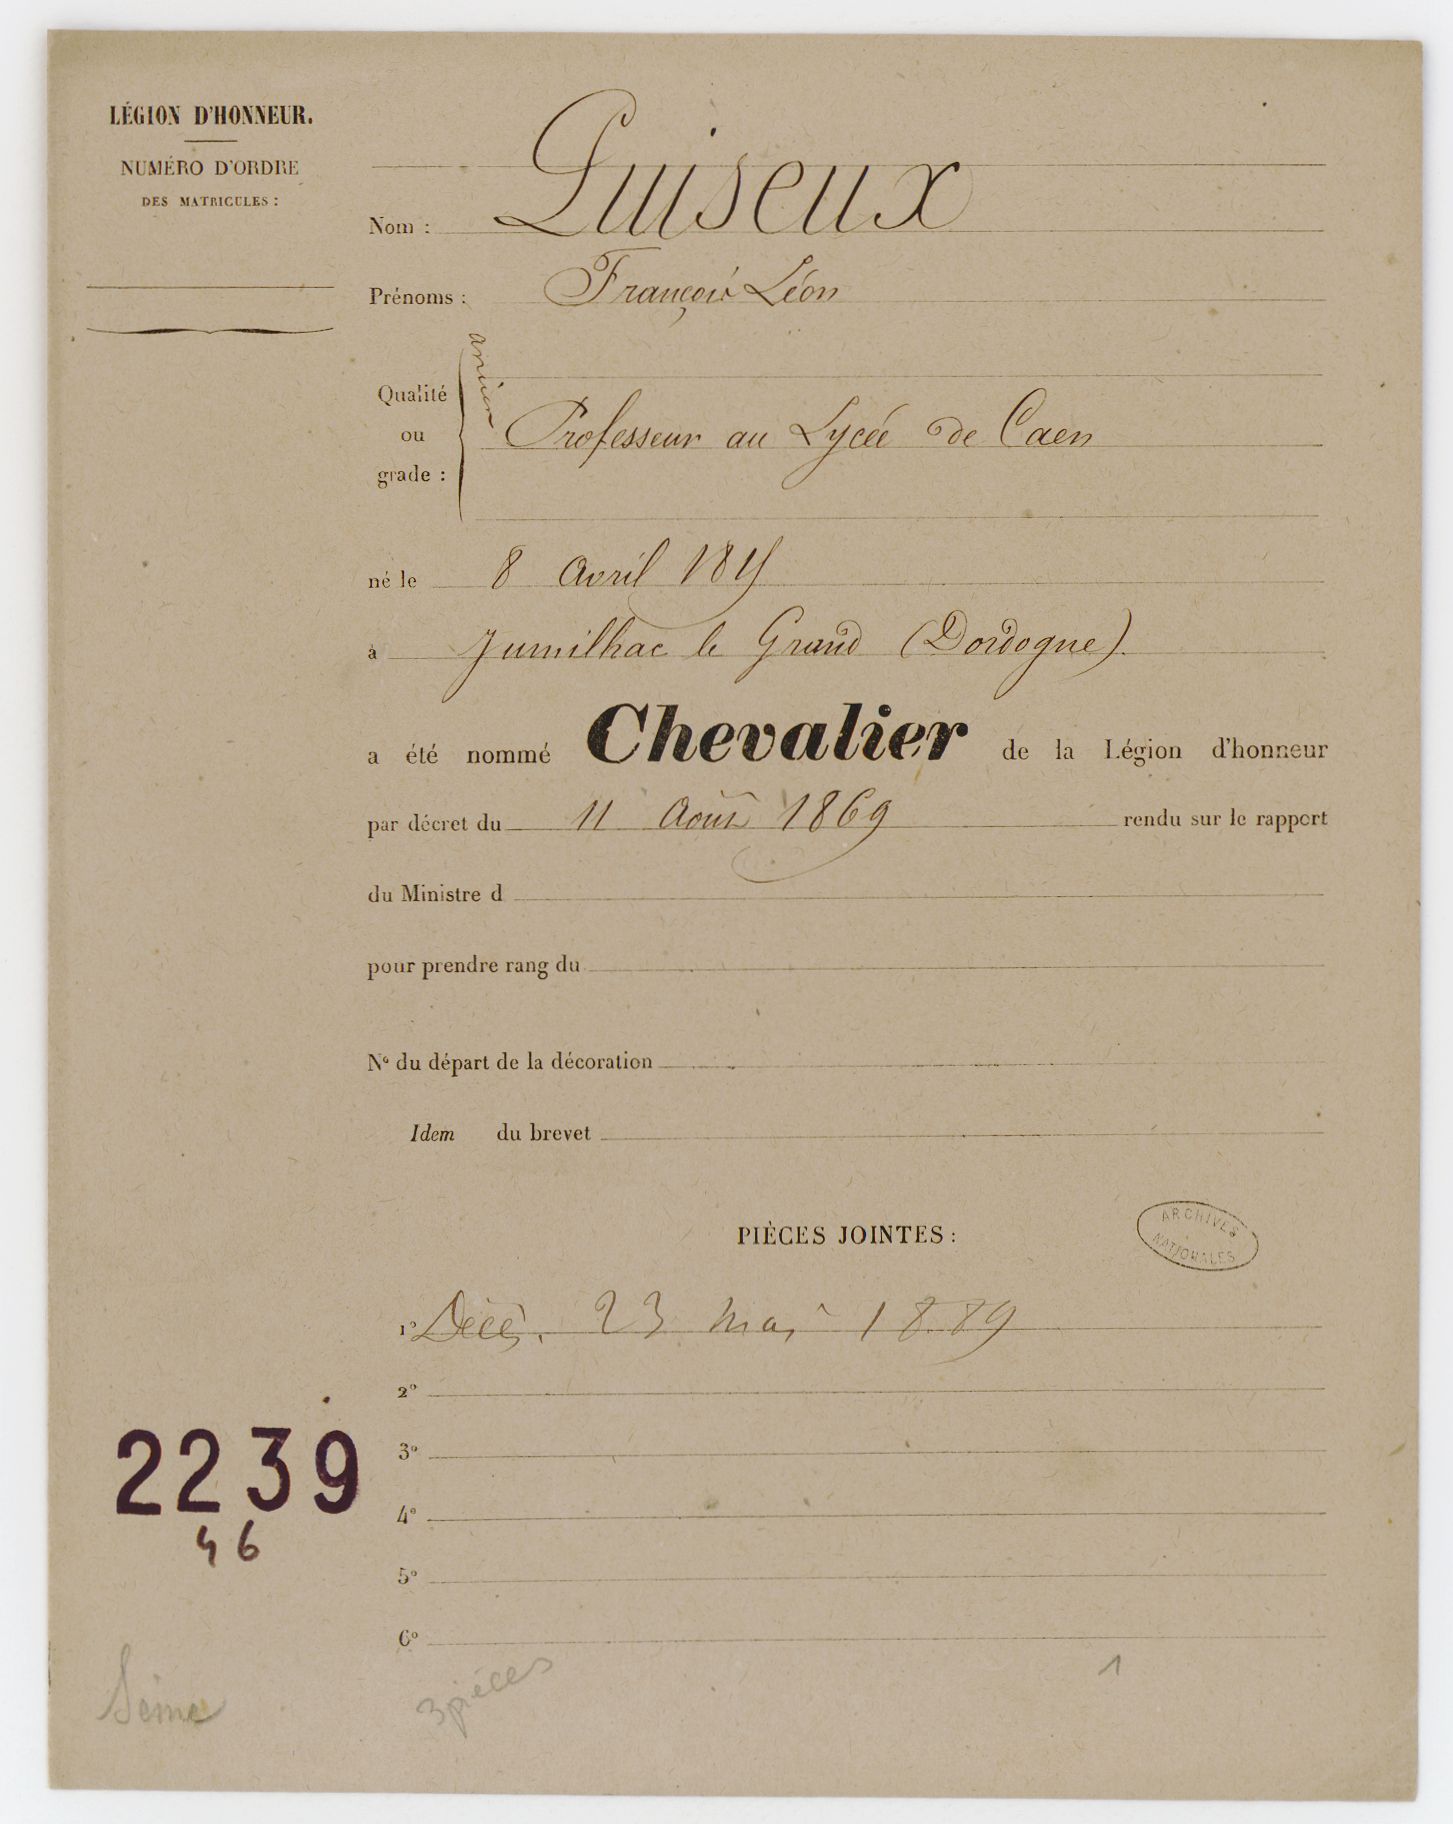 LÉGION D'HONNEUR.
NUMÉRO D'ORDRE
DES MATRICULES :
Nom : Puiseux
Prénoms : François Léon
ancien
Qualité
ou
grade :
Professeur au Lycée de Caen
né le 8 avril 1815
à Jumilhac le Grand (Dordogne).
a été nommé Chevalier de la Légion d'honneur
par décret du 11 Août 1869 rendu sur le rapport
du Ministre d
pour prendre rang du
N° du départ de la décoration
Idem du brevet
PIÈCES JOINTES :
ARCHIVES
NATIONALES
1° Décès. 23 mai 1889
2°
3°
2239
4°
46
5°
6°
Seine
3 pièces
1